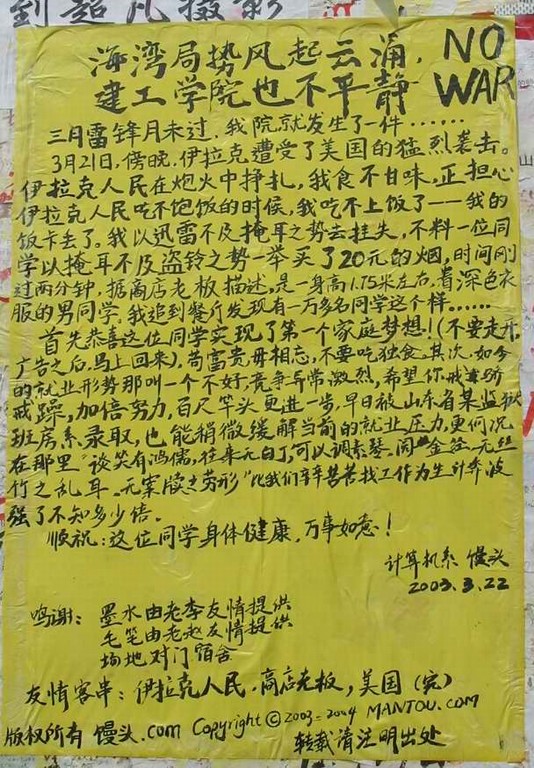 到超凡摄影
海湾局势风起云涌， NO
建工学院也不平静 WAR
三月雷锋月未过，我院就发生了一件……
3月21日，傍晚，伊拉克遭受了美国的猛烈袭击。
伊拉克人民在炮火中挣扎，我食不甘味，正担心
伊拉克人民吃不饱饭的时候，我吃不上饭了——我的
饭卡丢了，我以迅雷不及掩耳之势去挂失，不料一位同
学以掩耳不及盗铃之势一举买了20元的烟，时间刚
过两分钟，据商店老板描述，是一身高1.75米左右，着深色衣
服的男同学，我追到餐厅发现有一万多名同学这个样……
首先恭喜这位同学实现了第一个家庭梦想！（不要走开，
广告之后，马上回来），苟富贵，毋相忘，不要吃独食，其次，如今
的就业形势那叫一个不好，竞争异常激烈，希望你戒骄
戒躁，加倍努力，百尺竿头更进一步，早日被山东省某监狱
班房系录取，也能稍微缓解当前的就业压力，更何况
在那里“谈笑有鸿儒，往来无白丁，可以调素琴，阅金经，无丝
竹之乱耳，无案牍之劳形”比我们辛辛苦苦找工作为生计奔波
强了不知多少倍。
顺祝：这位同学身体健康，万事如意！
计算机系 馒头
2003.3.22
鸣谢：墨水由老李友情提供
毛笔由老赵友情提供
场地对门宿舍
友情客串：伊拉克人民，商店老板，美国（完）
版权所有 馒头.com Copyright © 2003-2004 MANTOU.COM
转载请注明出处